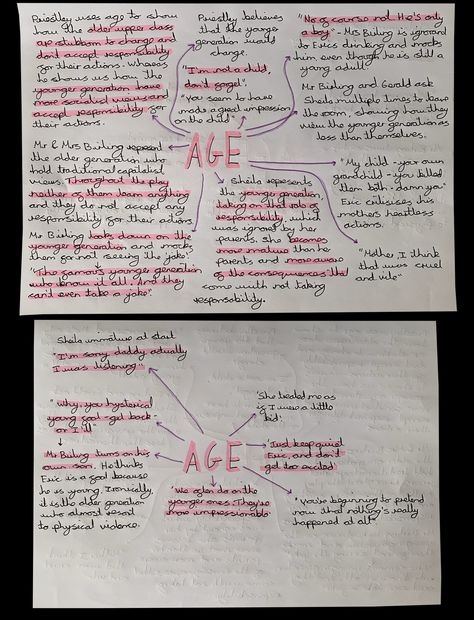 Priestley uses age to show
how the older upper class
are stubborn to change and
don't accept responsibility
for their actions. Whereas
he shows us how the
younger generation have
more socialist views and
accept responsibility for
their actions.
Priestley believes
that the younger
generation could
change.
"I'm not a child,
don't forget".
"You seem to have
made a great impression
on the child"
"No of course not. He's only
a boy" - Mrs Birling is ignorant
to Erics drinking and mocks
him even though he is still a
young adult.
Mr Birling and Gerald ask
Sheila multiple times to leave
the room, showing how they
view the younger generation as
less than themselves.
AGE
Mr & Mrs Birling represent
the older generation who
hold traditional capitalist
views. Throughout the play
neither of them learn anything
and they do not accept any
responsibility for their actions.
Mr Birling looks down on the
younger generation and mocks
them for not seeing 'the joke'.
"The famous younger generation
who know it all. And they
can't even take a joke".
Sheila represents
the younger generation
taking on that role of
responsibility, which
was ignored by her
parents. She becomes
more mature than her
parents and more aware
of the consequences that
come with not taking
responsibility.
"My child - your own
grandchild - you killed
them both - damn you"
Eric criticises his
mothers heartless
actions.
"Mother, I think
that was cruel
and vile"
Sheila immature at start
"I'm sorry daddy, actually
I was listening"
"Why, you hysterical
young fool - get back -
or I'll"
Mr Birling turns on his
own son. He thinks
Eric is a fool because
he is young. Ironically,
it is the older generation
who almost resort
to physical violence.
AGE
'She treated me as
if I were a little
kid!
'Just keep quiet
Eric, and don't
get too excited'
"We often do on the
younger ones. They're
more impressionable
"You're beginning to pretend
now that nothing's really
happened at all"